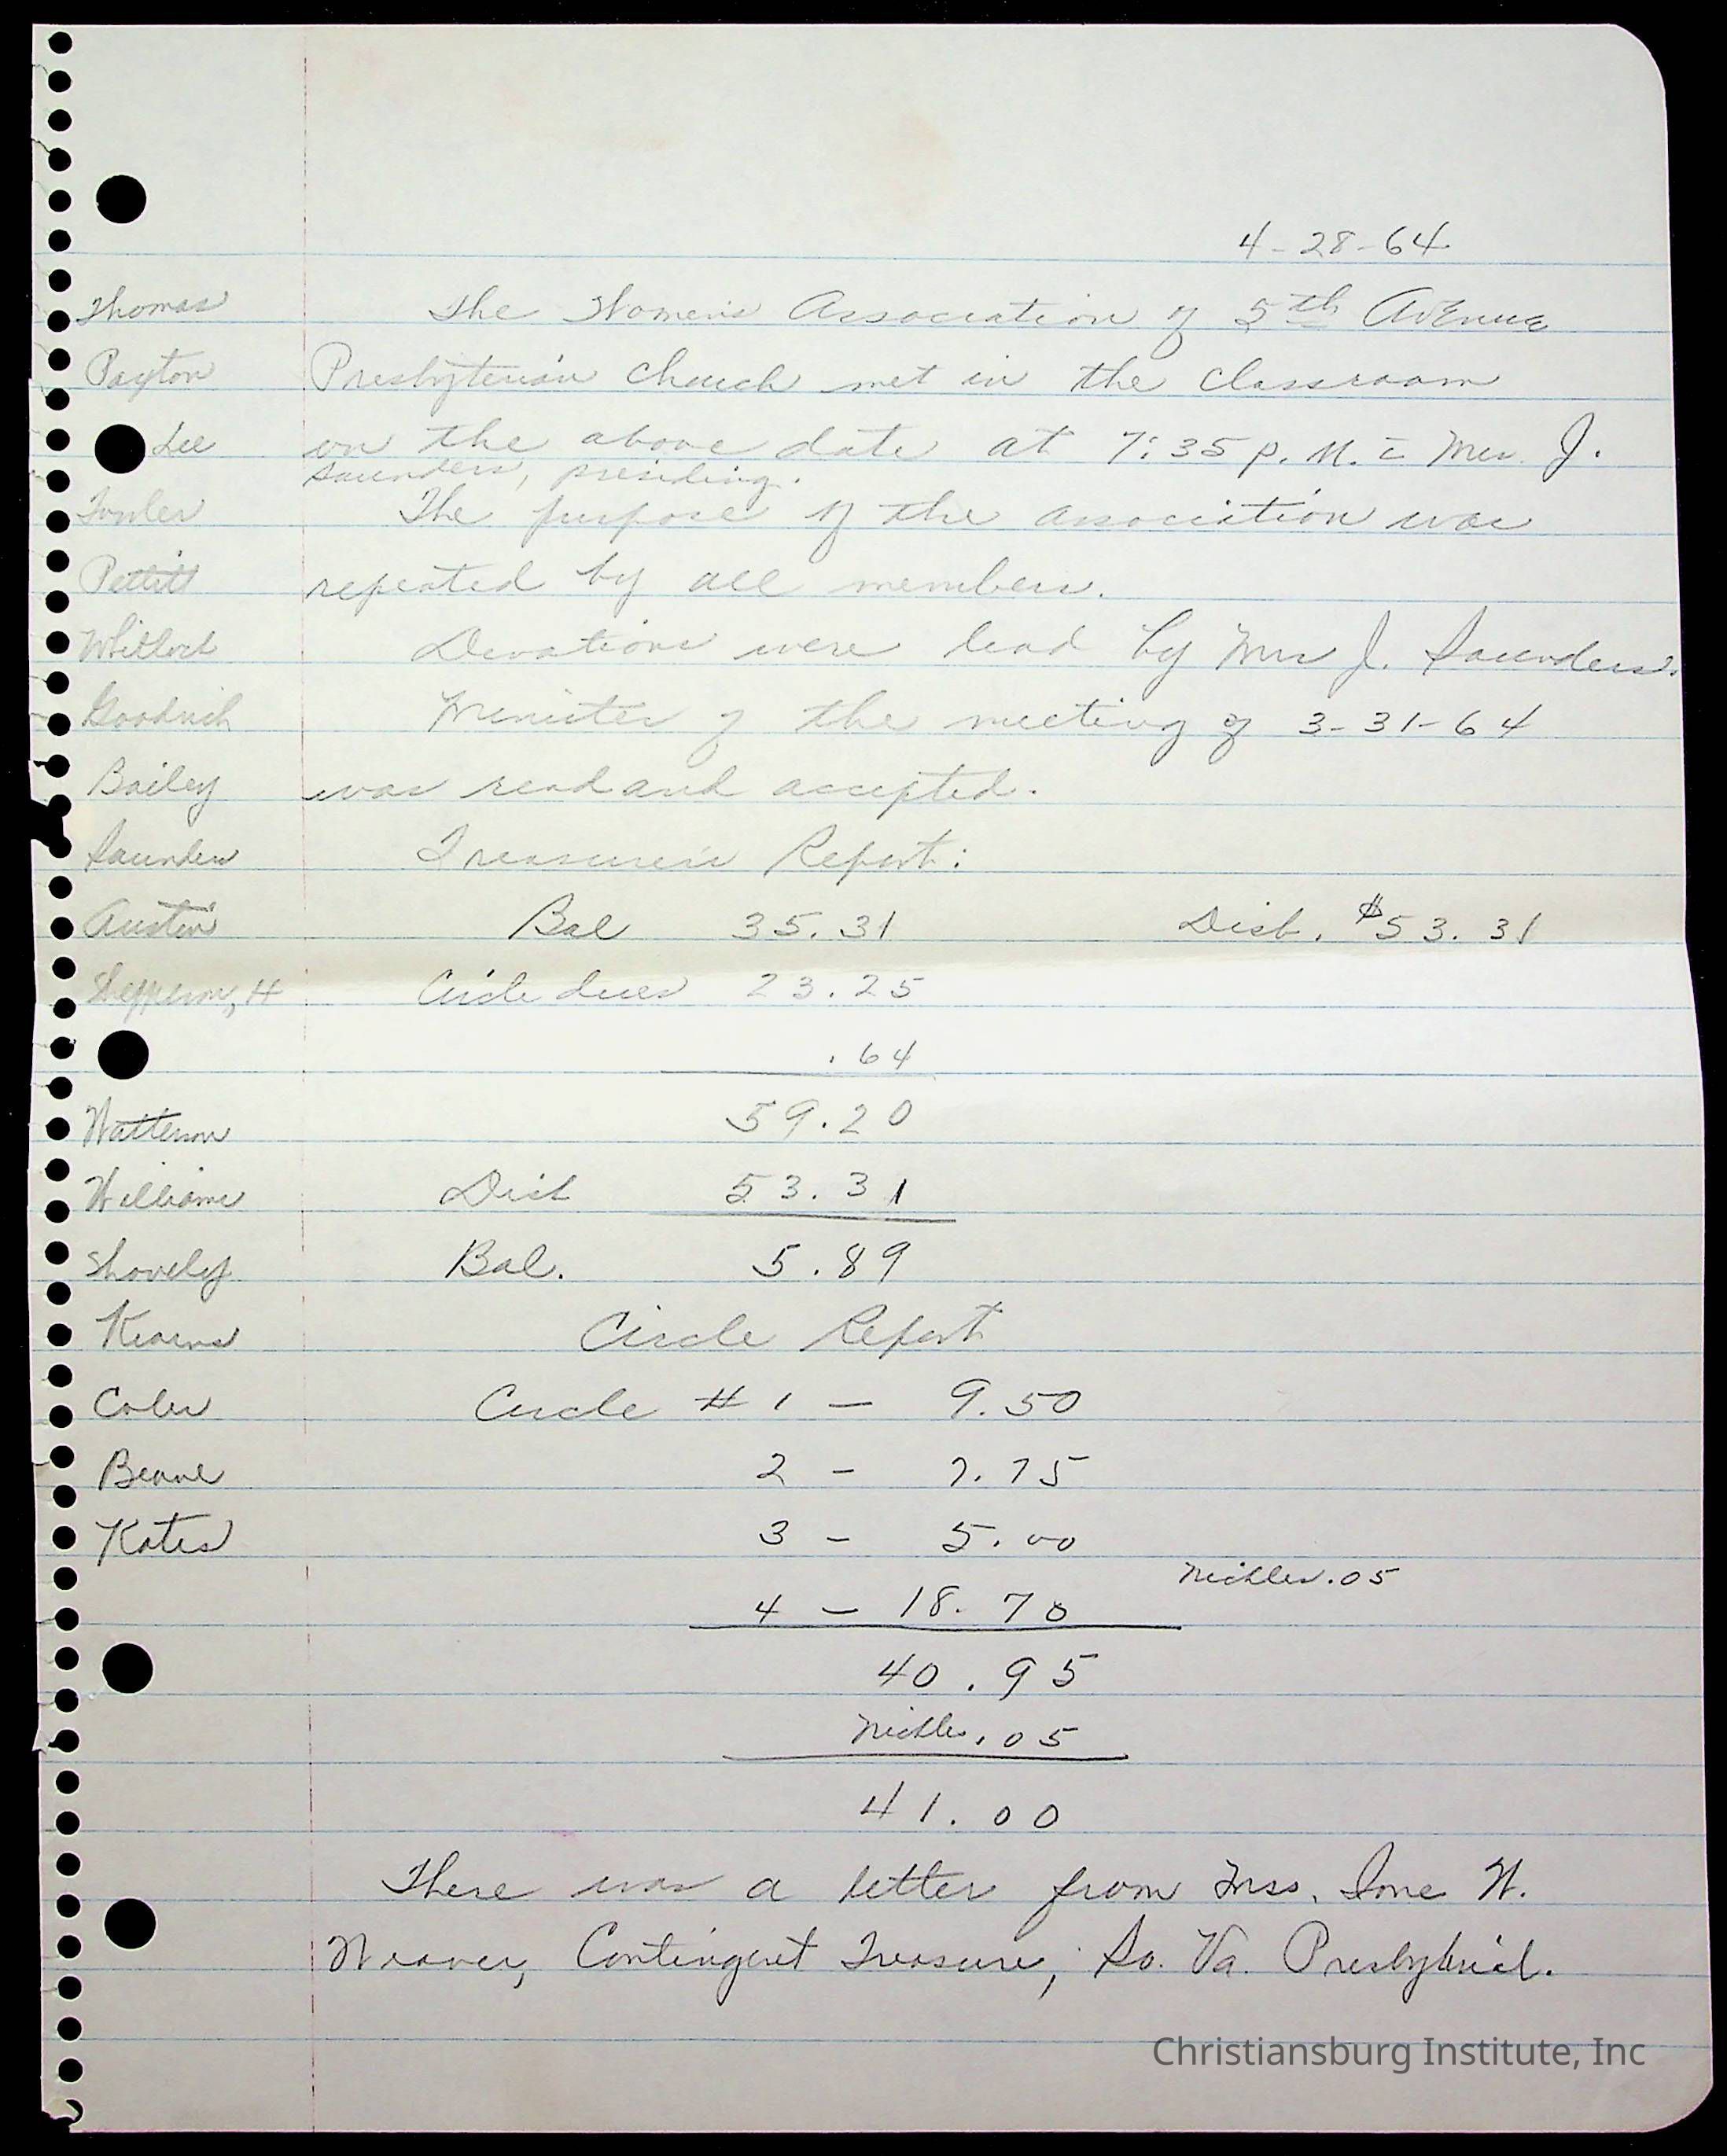 4-28-64
Thomas The Women's Association of 5th Avenue
Payton Presbyterian Church met in the classroom
Lee on the above date at 7:35 p.m. c̄ Mrs. J.
Saunders, presiding.
Fowler The purpose of the association was
Pettitt repeated by all members.
Whitlock Devotions were lead by Mrs J. Saunders.
Goodrich Minister of the meeting of 3-31-64
Bailey was read and accepted.
Saunders Treasurer's Report:
Austin Bal 35.31 Disb. $53.31
Shepperson, H Circle dues 23.25
.64
Watterson 59.20
Williams Disb 53.31
Shovely Bal. 5.89
Kearns Circle Report
Coles Circle #1 - 9.50
Beane 2 - 7.75
Kates 3 - 5.00
Nickles .05
4 - 18.70
40.95
Nickle .05
41.00
There was a letter from Mrs. Ione W.
Weaver, Contingent Treasure, So. Va. Presbyterial.
Christiansburg Institute, Inc